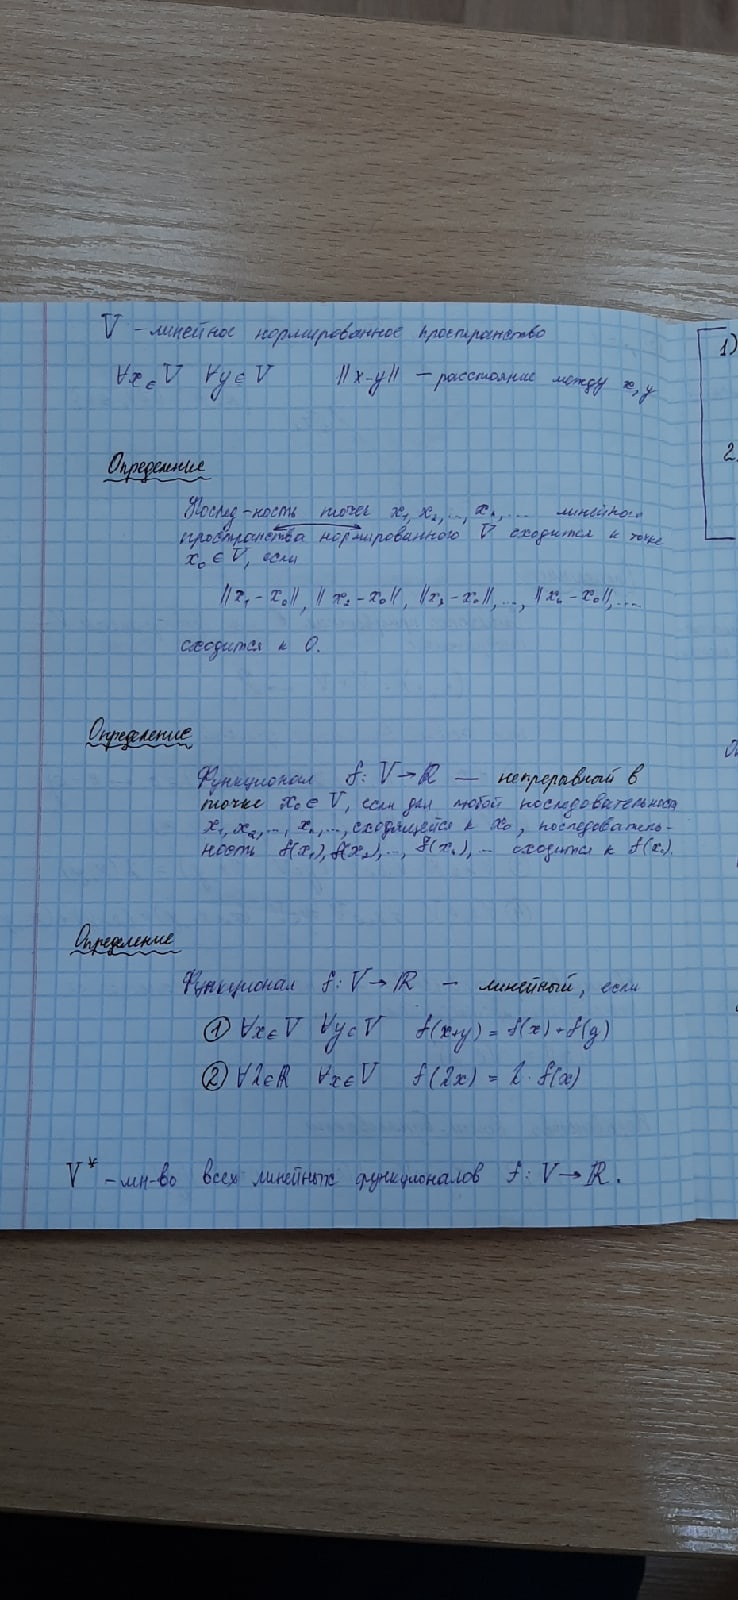 V - линейное нормированное пространство
∀x∈V ∀y∈V ||x-y|| — расстояние между x, y
1)
Определение
2.
Послед-ность точек x₁, x₂, ..., xₙ, ... линейного
пространства нормированного V сходится к точке
x₀ ∈ V, если
||x₁ - x₀||, ||x₂ - x₀||, ||x₃ - x₀||, ..., ||xₙ - x₀||, ...
сходится к 0.
Определение
Функционал f: V → ℝ — непрерывный в
точке x₀ ∈ V, если для любой последовательности
x₁, x₂, ..., xₙ, ..., сходящейся к x₀, последователь-
ность f(x₁), f(x₂), ..., f(xₙ), ... сходится к f(x₀).
Определение
Функционал f: V → ℝ — линейный, если
① ∀x∈V ∀y∈V f(x+y) = f(x) + f(y)
② ∀λ∈ℝ ∀x∈V f(λx) = λ · f(x)
V* - мн-во всех линейных функционалов f: V → ℝ.